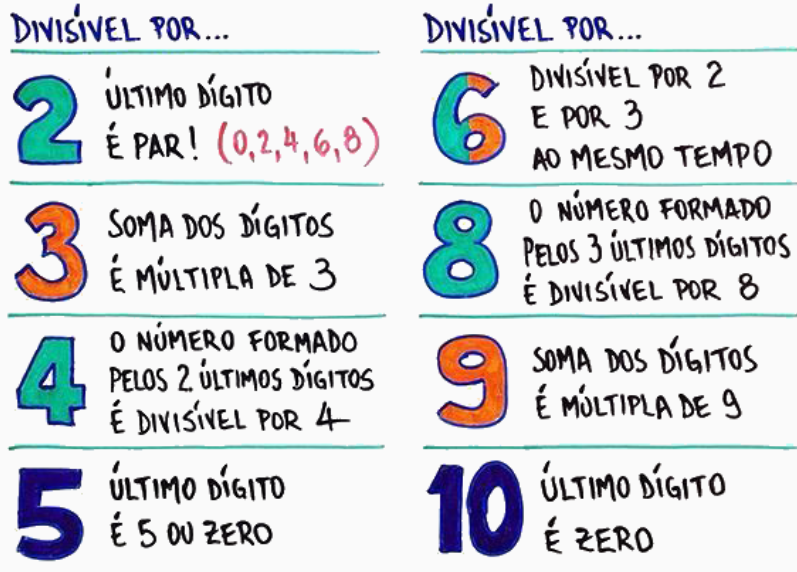 DIVISÍVEL POR...
2
ÚLTIMO DÍGITO
É PAR! (0,2,4,6,8)
3
SOMA DOS DÍGITOS
É MÚLTIPLA DE 3
4
O NÚMERO FORMADO
PELOS 2 ÚLTIMOS DÍGITOS
É DIVISÍVEL POR 4
5
ÚLTIMO DÍGITO
É 5 OU ZERO
DIVISÍVEL POR...
6
DIVISÍVEL POR 2
E POR 3
AO MESMO TEMPO
8
O NÚMERO FORMADO
PELOS 3 ÚLTIMOS DÍGITOS
É DIVISÍVEL POR 8
9
SOMA DOS DÍGITOS
É MÚLTIPLA DE 9
10
ÚLTIMO DÍGITO
É ZERO